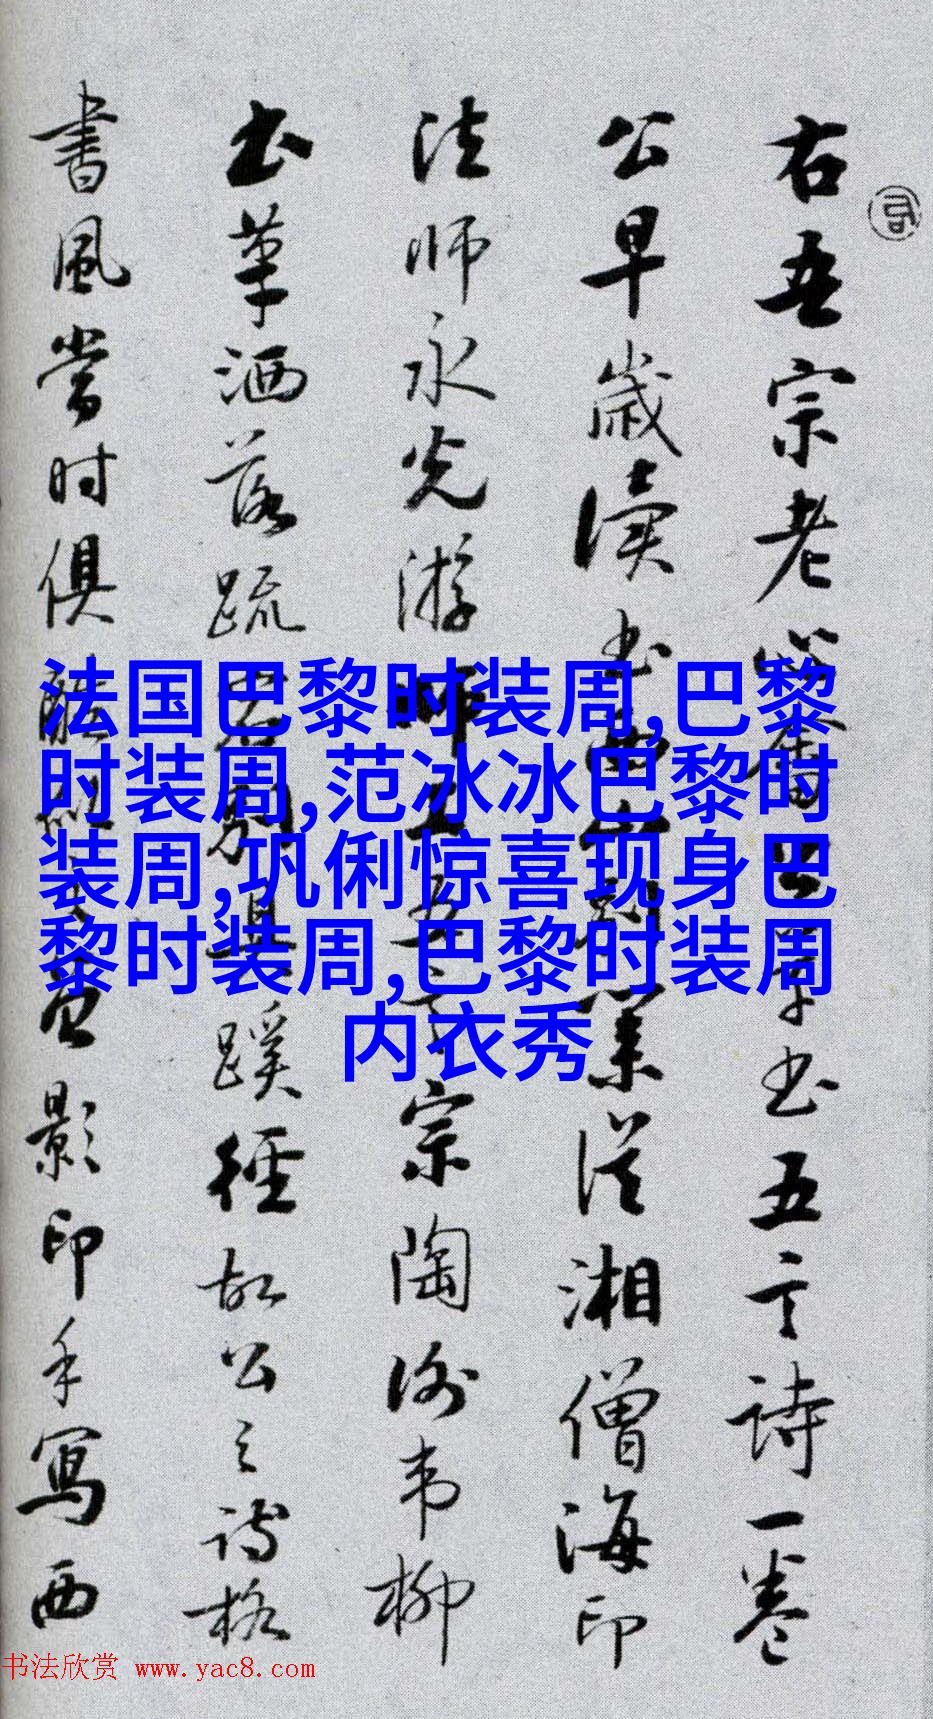 右吾宗老
書五言詩一卷
公早歲讀書
業從湘僧海印
法師永光游
宗陶謝韦柳
書草洒落疏
蹊徑故公之詩格
書風當时俱
影印手寫西
法国巴黎时装周,巴黎
时装周,范冰冰巴黎时
装周,巩俐惊喜现身巴
黎时装周,巴黎时装周
内衣秀
书法欣赏 www.yac8.com